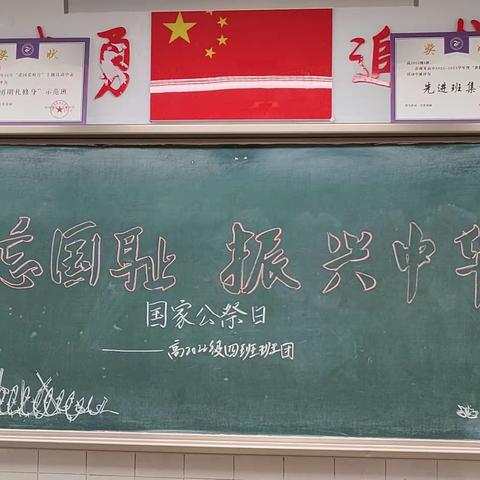 奖 状
明礼修身”示范班
勇
追
奖 状
先进班集
忘国耻 振兴中华
国家公祭日
——高2022级四班班团